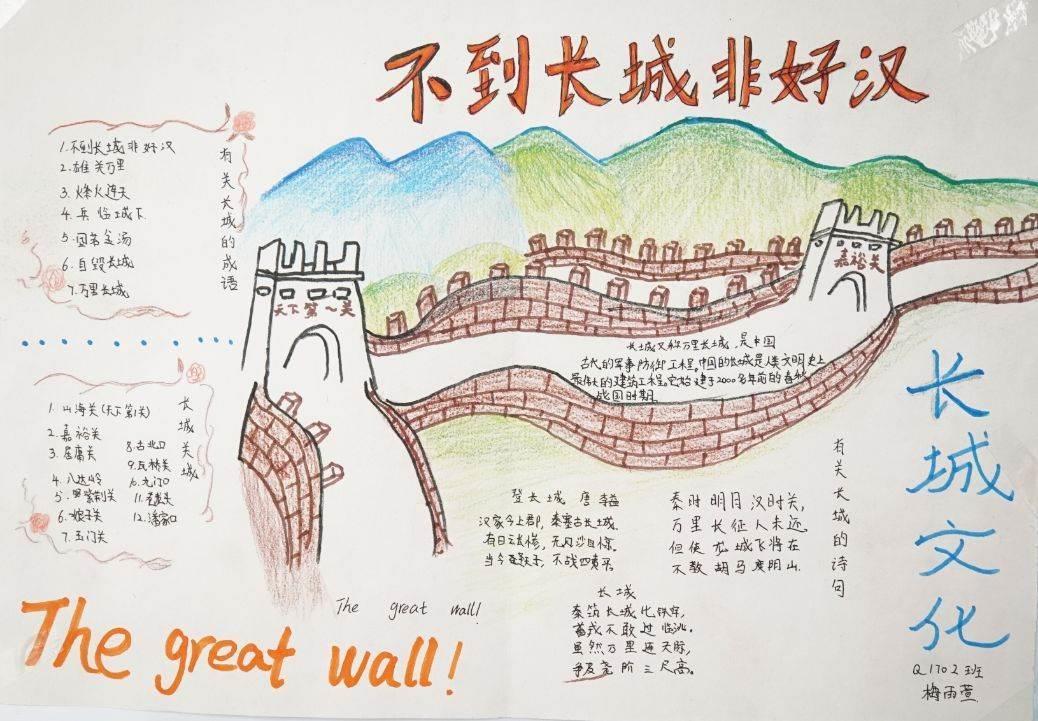 不到长城非好汉
有关长城的成语
1.不到长城非好汉
2.雄关万里
3.烽火连天
4.兵临城下
5.固若金汤
6.自毁长城
7.万里长城
天下第一关
嘉裕关
长城又称万里长城,是中国
古代的军事防御工程,中国的长城是人类文明史上
最伟大的建筑工程,它始建于2000多年前的春秋
战国时期.
长城关城
1.山海关(天下第1关)
2.嘉裕关
3.居庸关
4.八达岭
5.紫荆关
6.娘子关
7.玉门关
8.古北口
9.瓦桥关
10.九门口
11.
12.潘家口
有关长城的诗句
登长城 唐 李益
汉家今上郡,秦塞古长城.
有日云长惨,无风沙自惊.
当今圣天子,不战四夷平.
秦时明月汉时关,
万里长征人未还.
但使龙城飞将在
不教胡马度阴山.
长城
秦筑长城比铁牢,
蕃戎不敢过临洮.
虽然万里连天际,
争及尧阶三尺高。
长城文化
The great wall!
The great wall!
Q1702班
梅雨萱